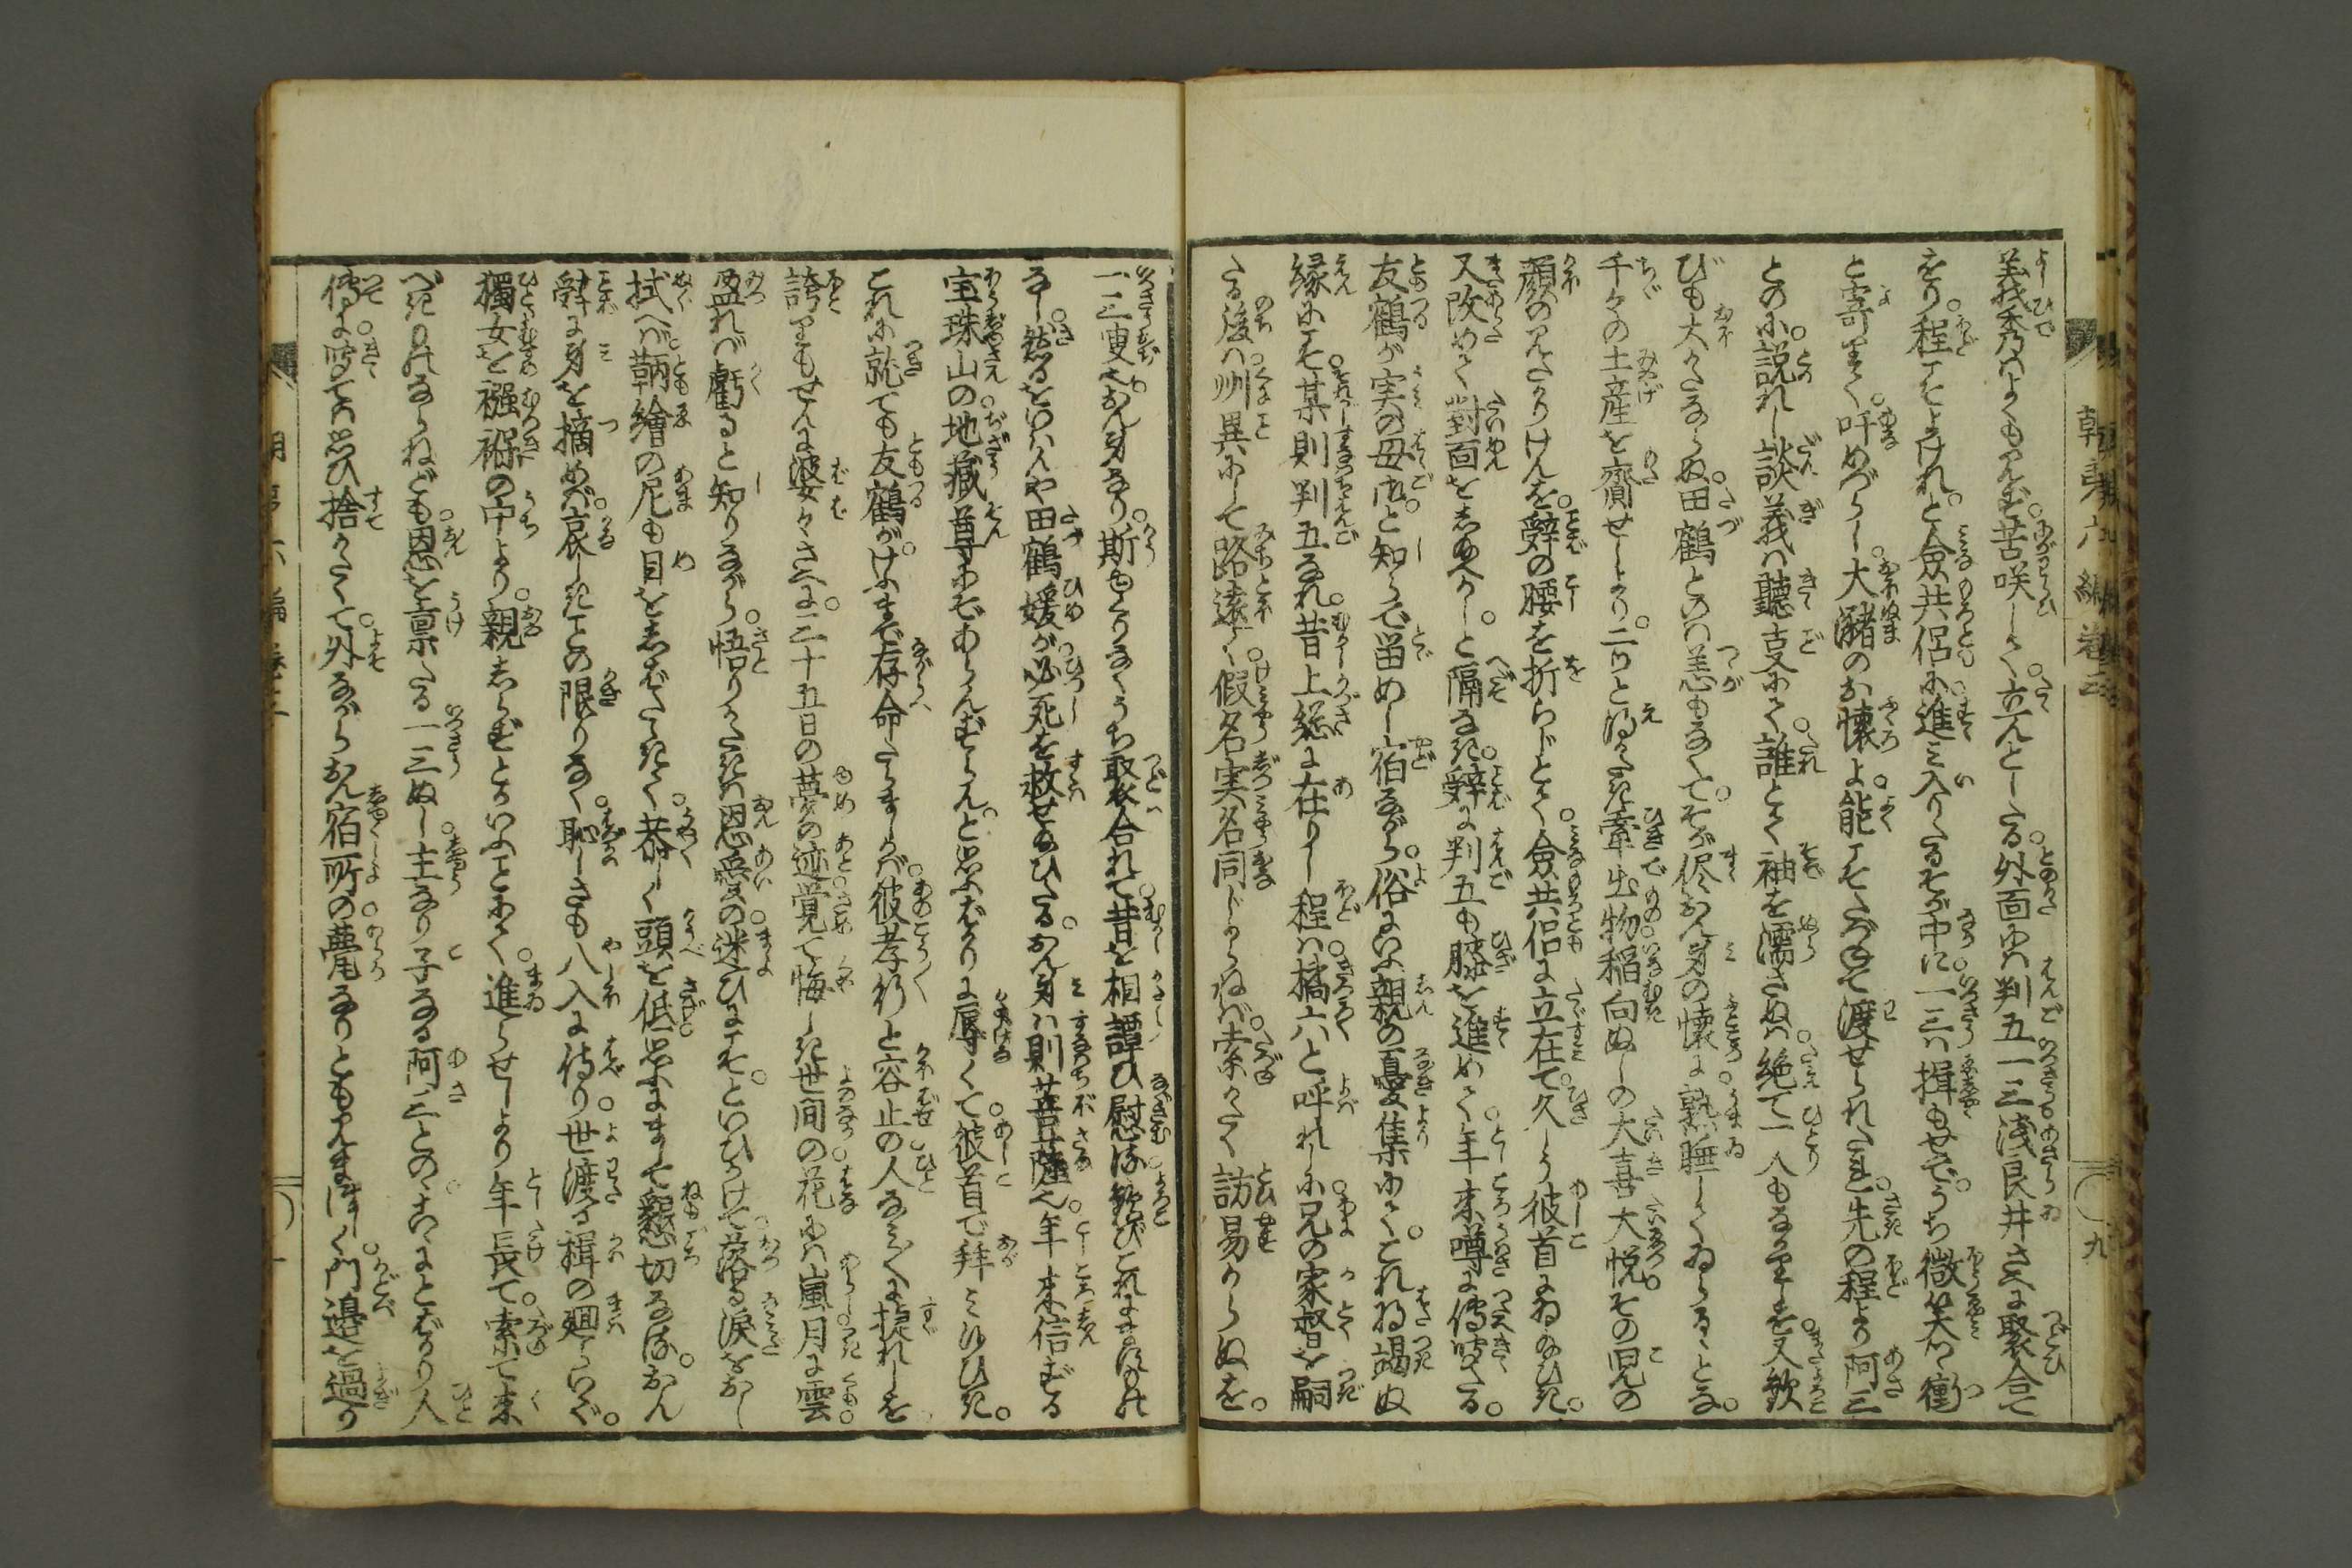 義秀ハよくも見ず。苦咲しく。立んとしたる。外面にハ判五一三浅良井さへに聚合て
をり。程こそよけれ。と僉共侶に進み入りたるそが中に一三ハ揖もせで。うち微笑つ衝
と寄りて。吁めづらし。大潴のお懐よ。能こそたづねて渡せられたれ。先の程より阿三
との に。説れし談義ハ聽支て。誰とて袖を濡さぬハ。絶て一人もなかりしを。又歓
びも大かたならぬ。田鶴とのハ恙もなくて。そが侭おん身の懐に熟睡してゐらるゝとな。
千々の土産を齎せしより。二ツと得がたき牽出物。稲向ぬしの大喜大悦。その兒の
顔の見たかりけんを。辞の腰を折らじとて。僉共侶に立在て。久しう彼首にゐ給ひき。
又改めて對面をし給へかし。と隔なき。辞に判五も膝を進めて。年来噂に傳聞たる。
友鶴が実の母御。と知らで留めし宿ながら。俗にいふ親の憂集にて。これ将竭ぬ
縁にこそ。某則判五なれ。昔上総に在りし程ハ。橘六と呼れしに。兄の家督を嗣
たる後ハ。州異にして路遠く。假名実名同じからねば。索かたく訪易からぬを。
一三叟也おん身なり。斯もくりなくうち聚合れて。昔を相譚ひ慰る。歓びこれにますものは
なし。然るをいハんや田鶴媛が必死を救せ給ひたる。おん身ハ則菩薩也。年来信ずる
宝珠山の地藏尊にぞあらんずらん。と思ふばかりに辱くて。彼首で拜み侍ひき。
これに就ても友鶴が。けふまで存命たらましかバ。彼孝行と容止の人なみ〳〵に提れしを
誇りもせんに婆々さへに。二十五日の夢の迹。覚て悔しき世間の花にハ嵐月に雲。
盈れバ虧ると知りながら。悟りかたきハ恩愛の。迷ひにこそ。といひかけて。落る涙をおし
拭へバ。鞆繪の尼も目をしばたゝきて。恭しく頭を低。思ふにまして懇切なる。おん
辞に身を摘めバ。哀しきことの限りなく。恥しさも八入に侍り。世渡る揖の廻らいで。
獨女を襁褓の中より。親しらずとかいふことにて。進らせしより年長て。索て来
べきものならねども。恩を稟たる一三ぬし。主なり子なる阿三とのゝ。いふによばかり人
傳に。聞てハ思ひ捨かたくて。外ながらおん宿所の甍なりとも見まほしく。門邉を過り
朝夷六編巻三
九